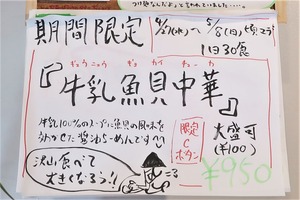 つけ麺なんだよ」と言われていました・・・。
期間限定
4/21(水)〜 5/8(日)頃まで
1日30食
ぎゅうにゅう ぎょ かい ちゅうか
『牛乳魚貝中華』
牛乳100%のスープに魚貝の風味を
きかせた醤油らーめんです
限定
C
ボタン
大盛可
(¥100)
沢山食べて
大きくなろう!!
¥950